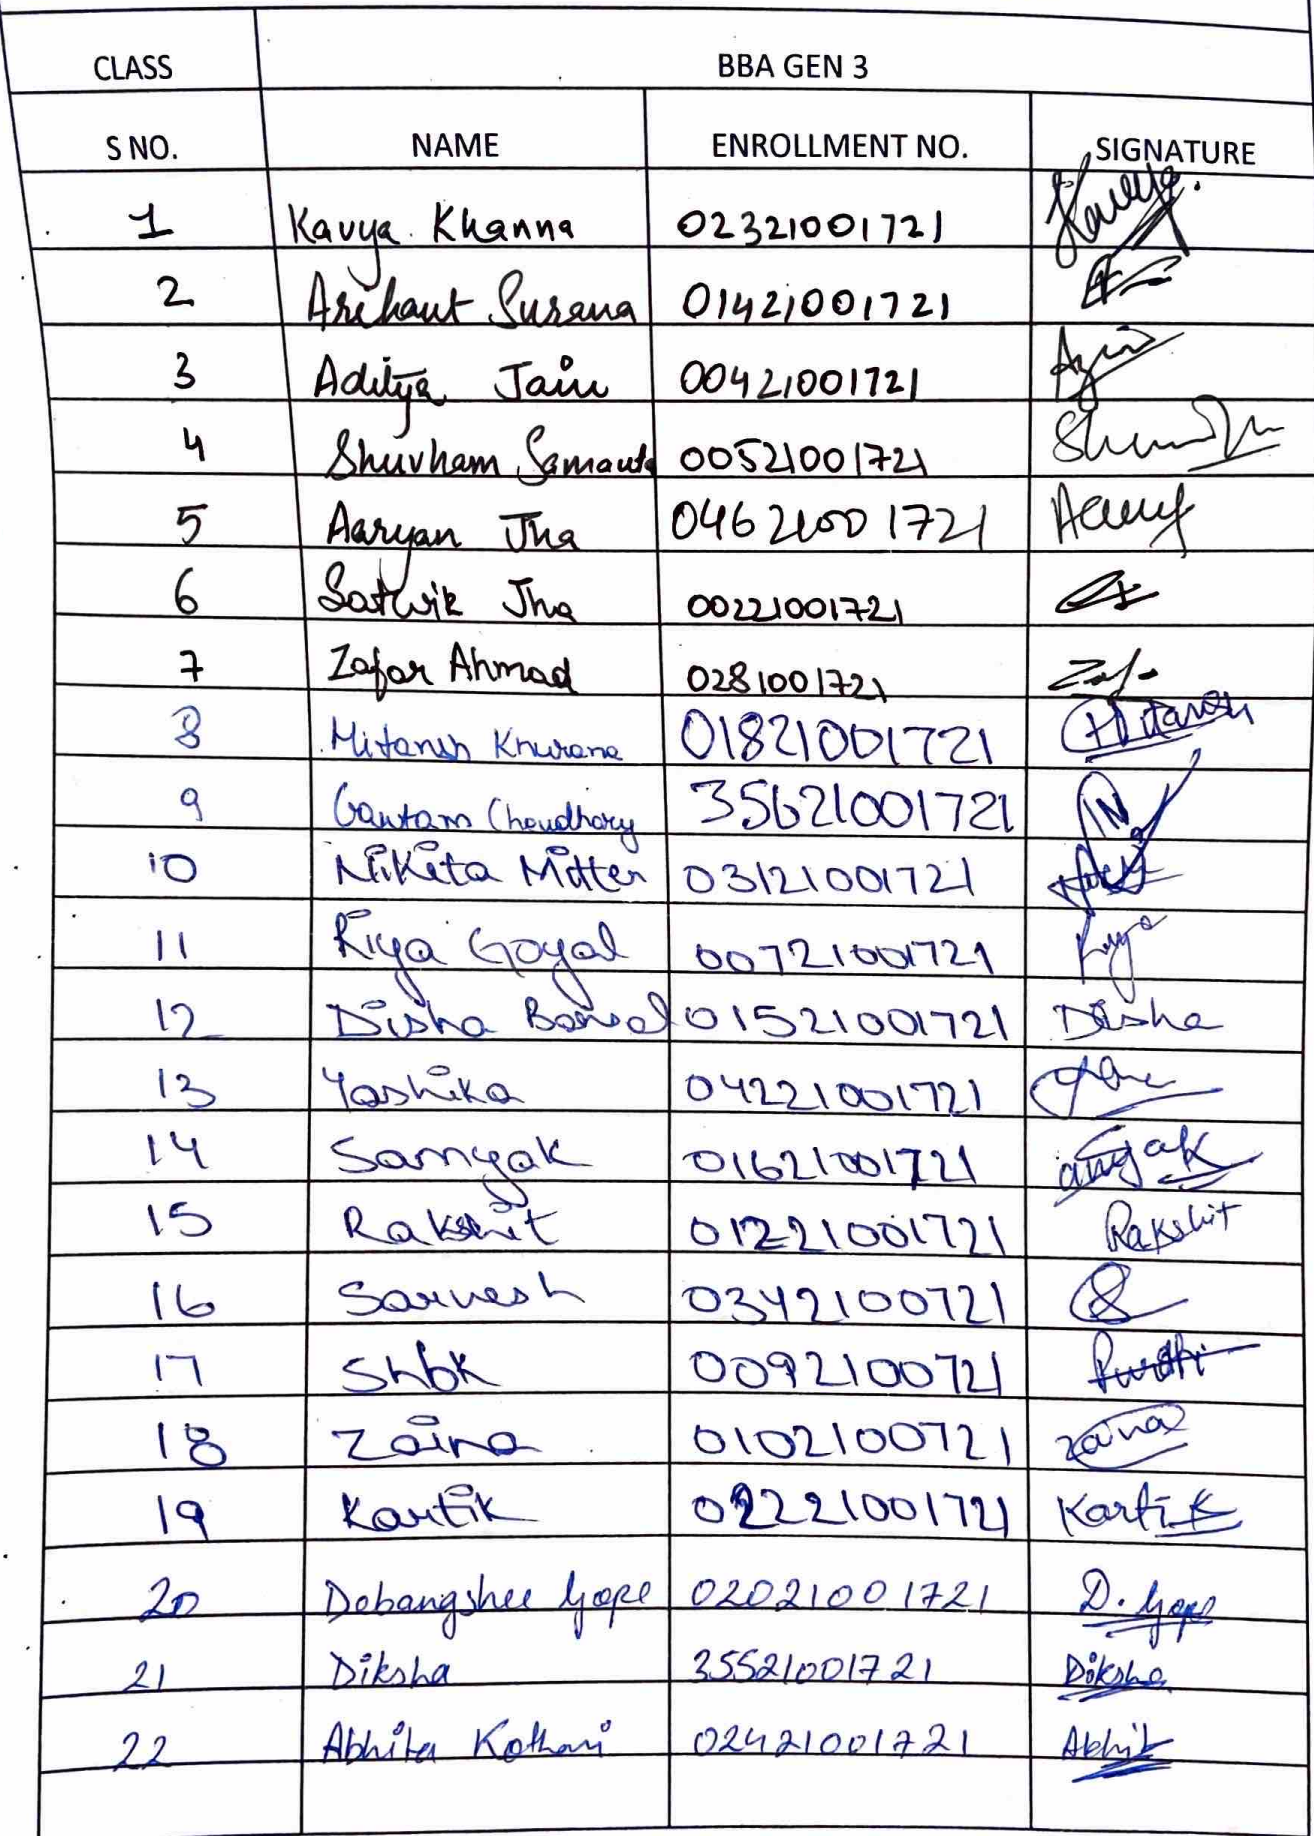 CLASS BBA GEN 3
S NO. NAME ENROLLMENT NO. SIGNATURE
1 Kavya Khanna 02321001721
2 Arihant Surana 01421001721
3 Aditya Jain 00421001721
4 Shuvham Samanta 00521001721
5 Aaryan Jha 04621001721
6 Satwik Jha 00221001721
7 Zafar Ahmad 0281001721
8 Hitansh Khurana 01821001721 Hitansh
9 Gautam Choudhary 35621001721
10 Nikita Mitter 03121001721
11 Riya Goyal 00721001721 Riya
12 Disha Bansal 01521001721 Disha
13 Yashika 04221001721
14 Samyak 01621001721
15 Rakshit 01221001721 Rakshit
16 Sarvesh 0342100721
17 Shbk 0092100721
18 Zaina 0102100721 Zaina
19 Kartik 02221001721 Kartik
20 Debangshee Gope 02021001721 D. Gope
21 Diksha 35521001721 Diksha
22 Abhita Kothari 02421001721